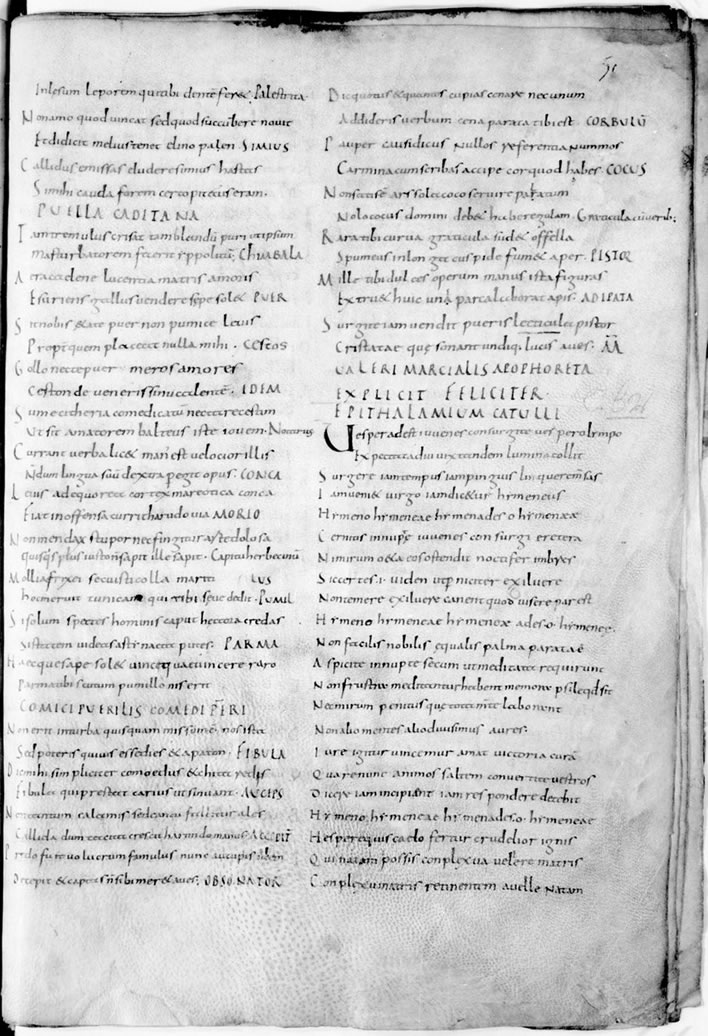 51
Inlesum leporem qui tibi dente feret. Palestrita
Non amo quod vincat sed quod succubere novit
Et didicit melius tenet elino palen SIMIUS
Callidus emissas eludere simius hastas
Si mihi cauda foret cercopitecus eram.
PUELLA GADITANA
Tam tremulus crisat tam blandum
masturbatorem fecerit yppolitum. CHIABALA
Atracta lene lucerna matris amoris
Esuriens gallus vendere sepe solet PUER
Sit nobis etate puer non pumice levis
Propter quem placeat nulla mihi. CESTOS
Collo necte puer meros amores
Ceston de veneris sinu calente. IDEM
Sume citheriaco medicatu nectare ceston
Ussit amatorem balteus iste iovem. Notarius
Currant verba licet manus est velocior illis
Nondum lingua suum dextra peregit opus. CONCA
Levis ab equorea cortex mareotica conca
Fiat inoffensa curri harudo via MORIO
Non mendax stupor nec fingitur arte dolosa
quisquis plus iusto non sapit ille sapit. Caput herbecinum
Mollia frixei secuisti colla mariti
hoc meruit tunicam qui tibi sepe dedit. PUMILIUS
Si solum spectes hominis caput hectora credas
Si stantem videas astianacta putes. PARMA
Haec que sepe solet vinci qua vincere raro
Parma tibi scutum pumilio nis erit
COMICI PUERILIS COMEDI PUERI
Non erit in turba quisquam missumene nos ista
Sed poteris quivis esse dis et apaton. FIBULA
Dic mihi simpliciter comoedus et
Fibula qui prestet carius ut futuant. AUCEPS
Non tantum calamis sed cantu fallitur ales
Callida dum tacita crescit harundo manus ACCIPITER
Predo fuit volucrum famulus nunc aucupis idem
Decipit et captas non sibi meret aves. OBSONATOR
Dic quotus et quanti cupias cenare nec unum
Addideris verbum cena parata tibi est. CORBULUM
Pauper causidicus nullos referentia nummos
Carmina cum scribas accipe cor quod habes COCUS
Non satis est ars sola coco servire palatum
Nolo cocus domini debet habere gulam. Graticula cum verib;
Rara tibi curva graticula sudet ofella
Spumeus in longa cuspide fumet aper. PISTOR
Mille tibi dulces operum manus ista figuras
Extruet huic uni parca laborat apis. ADIPATA
Surgite iam vendit pueris lentacula pistor
Cristatae que sonant undique lucis aves. AA
VALERI MARCIALIS APOPHORETA
EXPLICIT FELICITER.
EPITHALAMIUM CATULLI
Vesper adest iuvenes consurgite vesper olimpo
Expectata diu vix tandem lumina tollit
Surgere iam tempus iam pinguis linquere mensas
Iam veniet virgo iam dicetur hymeneus
Hymeno hymeneae hymenades o hymeneae
Cernitis innupte iuvenes consurgi eretera
Nimirum oeta eos ostendit noctifer imbres
Sic certes. i. viden ut perniciter exiluere
Non temere exiluere canent quod visere par est
Hymeno hymeneae hymeneae ades o. hymeneae.
Non facilis nobilis equalis palma paratae
Aspicite innupte secum ut meditata requirunt
Non frustra meditantur habent memore psile quod sit
Nec mirum penitus que tota mente laborent
Nos alio mentes alio divisimus aures.
Iure igitur vincemur amat victoria curam
Quare nunc animos saltem convertite vestros
Dicere iam incipient iam respondere decebit
Hymeno. hymeneae hymenades. o. hymeneae
Hespere qui caelo fertur crudelior ignis
Qui natam possis conplexu avelere matris
Conplexu matris retinentem avelle natam